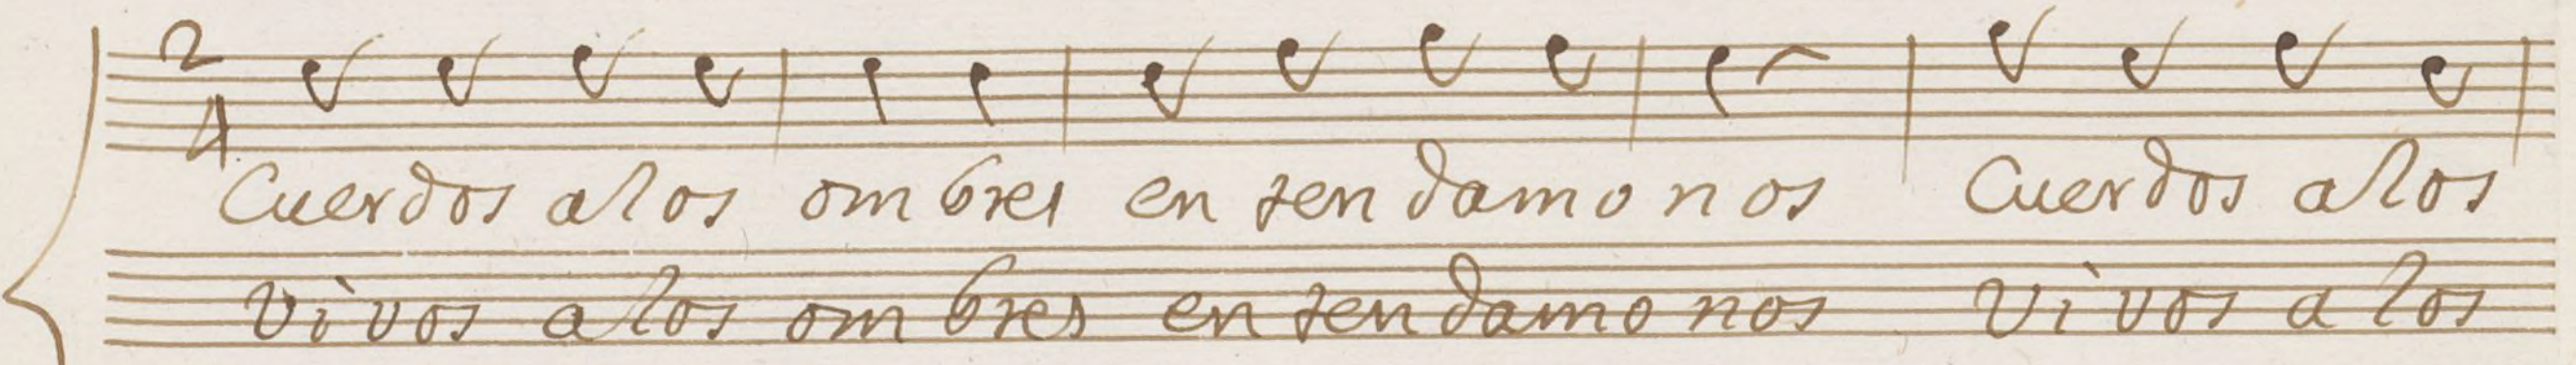 2
4
Cuerdos a los om bres en ten damo n os Cuerdos a los
vivos a los om bres en ten damo nos vivos a los